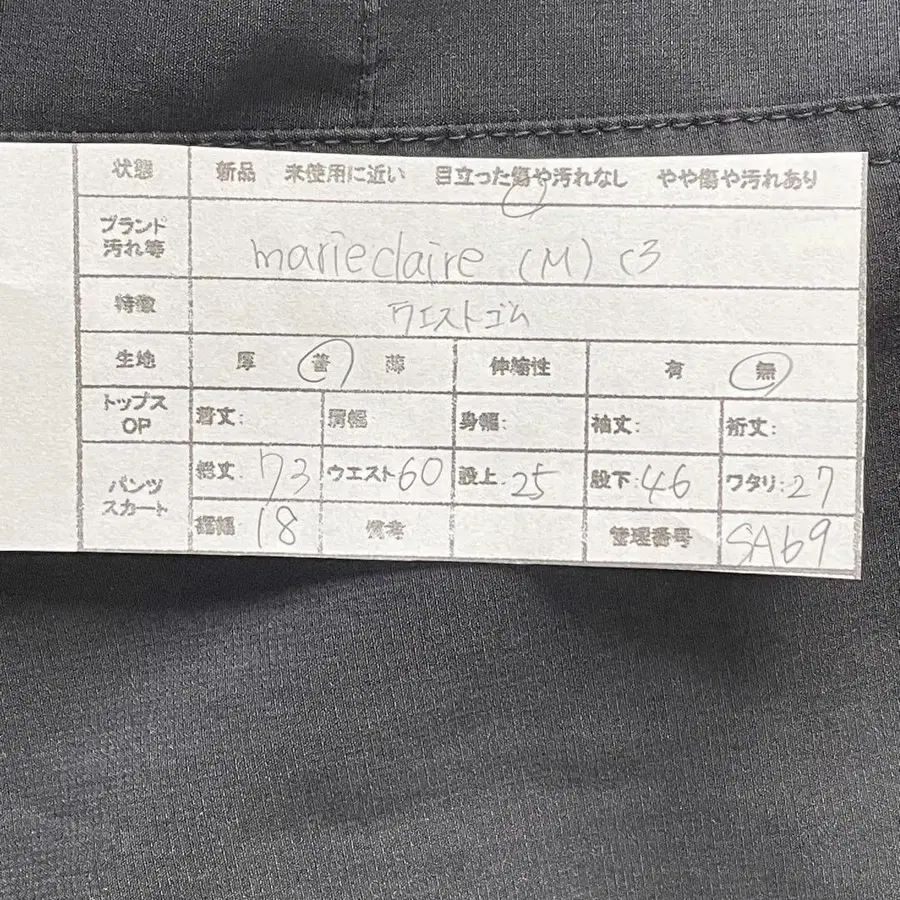 状態 新品 未使用に近い 目立った傷や汚れなし やや傷や汚れあり
ブランド
汚れ等 marieclaire (M) C3
特徴 ウエストゴム
生地 厚 普 薄 伸縮性 有 無
トップス
OP 着丈: 肩幅 身幅: 袖丈: 裄丈:
パンツ
スカート 総丈: 73 ウエスト 60 股上: 25 股下: 46 ワタリ: 27
裾幅: 18 備考 管理番号 SA69